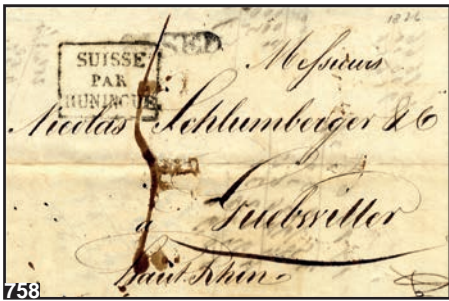 1826
SUISSE
PAR
HUNINGUE
Messieurs
Nicolas Schlumberger & C
à
Guebwiller
Haut Rhin
758